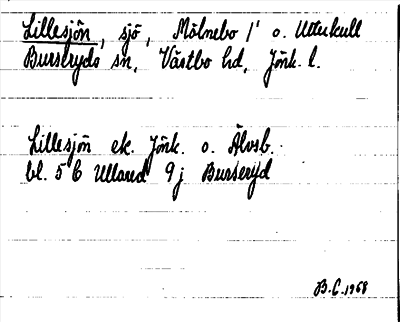 Lillesjön, sjö, Mölnebo 1¹ o. Utterkull
Burseryds sn, Västbo hd, Jönk. l.
Lillesjön ek. Jönk. o. Älvsb.
bl. 5 C Ullared 9 j Burseryd
B.C. 1968